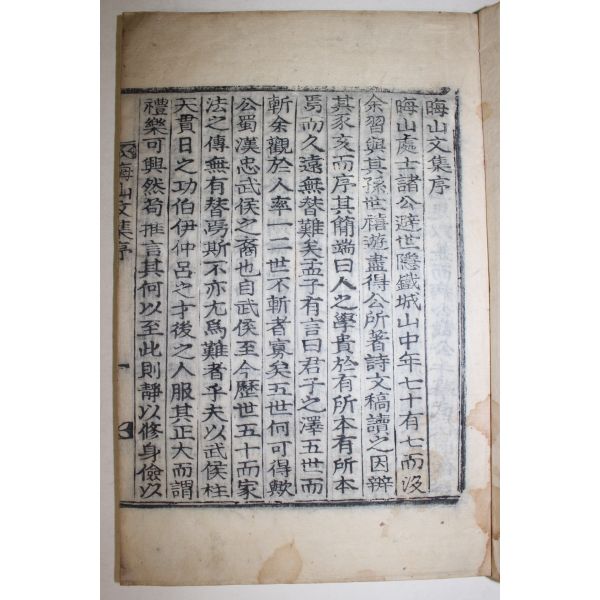 晦山文集序
晦山處士諸公避世隱鐵城山中年七十有七而沒
余習與其孫世禧遊盡得公所著詩文稿讀之因辨
其豕亥而序其簡端曰人之學貴於有所本有所本
焉而久遠無替難矣孟子有言曰君子之澤五世而
斬余觀於人率一二世不斬者寡矣五世何可得歟
公蜀漢忠武侯之裔也自武侯至今歷世五十而家
法之傳無有替焉斯不亦尤爲難者乎夫以武侯柱
天貫日之功伯伊仲呂之才後之人服其正大而謂
禮樂可興然苟推言其何以至此則靜以修身儉以
晦山文集序
一